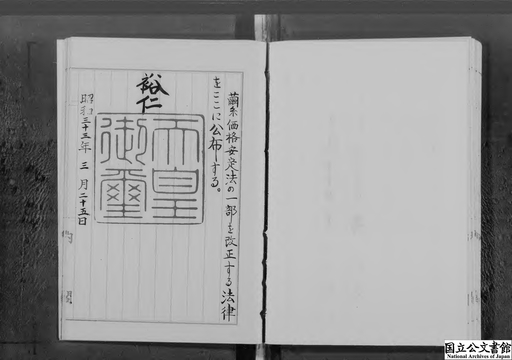 繭糸価格安定法の一部を改正する法律
をここに公布する。
裕仁
天皇
御璽
昭和三十三年三月二十五日
国立公文書館
National Archives of Japan